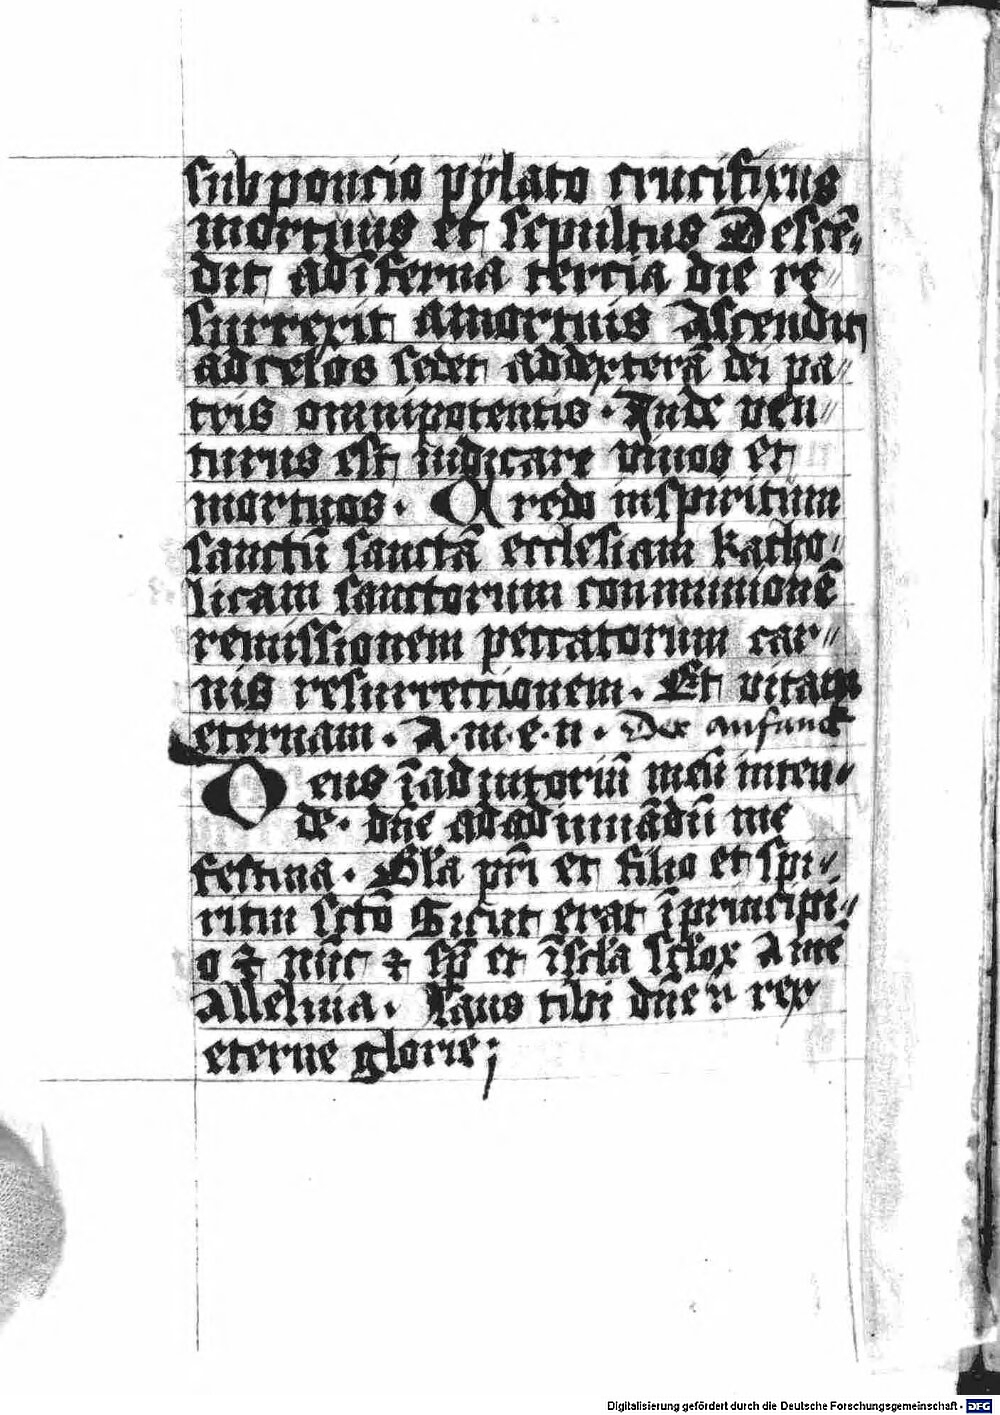 sub poncio pÿlato crucifixus
mortuus et sepultus Descē-
dit ad īferna tercia die re-
surrexit a mortuis Ascendit
ad celos sedet ad dexterā dei pa-
tris omnipotentis · Inde ven-
turus est iudicare viuos et
mortuos · Credo in spiritum
sanctū sanctā ecclesiam katho-
licam sanctorum conmunionē
remissionem peccatorum car-
nis resurrectionem · Et vitam
eternam · A·m·e·n · Der anfanck
Deus ī adiutoriū meū inten-
de · dn̄e ad adiuuādū me
festina · Gl̄a pr̄i et filio et spi-
ritui sctō Sicut erat ī principi-
o ⁊ nūc ⁊ sp̄ et ī scl̄a scl̄oꝝ Amē
Alleluia · Laus tibi dn̄e rex
eterne glorie ;
Digitalisierung gefördert durch die Deutsche Forschungsgemeinschaft - DFG